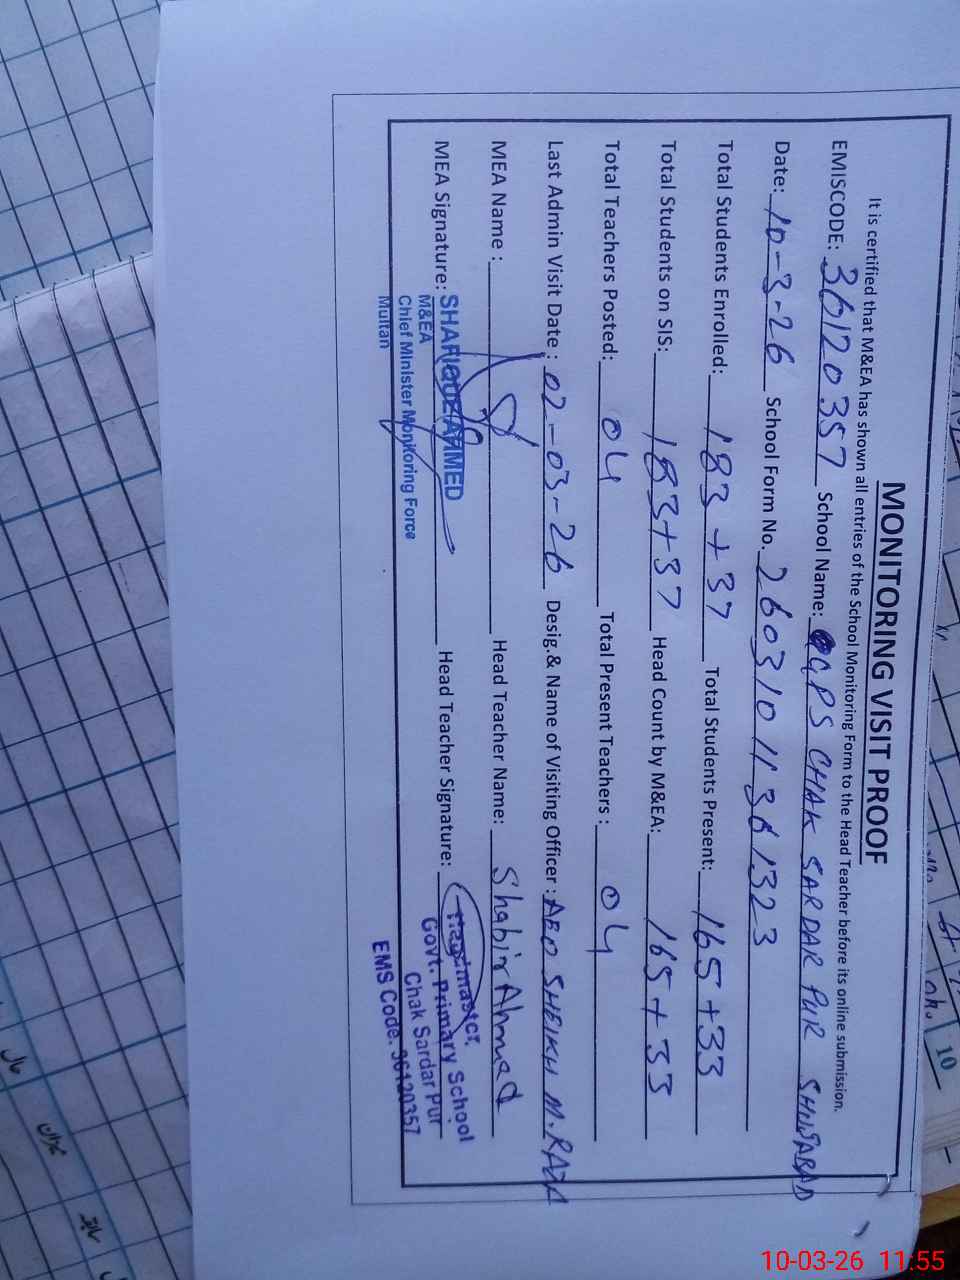 MONITORING VISIT PROOF
It is certified that M&EA has shown all entries of the School Monitoring Form to the Head Teacher before its online submission.
EMISCODE: 36120357 School Name: GPS CHAK SARDAR PUR SHUJABAD
Date: 10-3-26 School Form No. 26031011361323
Total Students Enrolled: 183+37 Total Students Present: 165+33
Total Students on SIS: 183+37 Head Count by M&EA: 165+33
Total Teachers Posted: 04 Total Present Teachers: 04
Last Admin Visit Date: 02-03-26 Desig.& Name of Visiting Officer: AEO SHEIKH M.RAZA
MEA Name: Head Teacher Name: Shabir Ahmad
MEA Signature: Head Teacher Signature:
SHAFIQUE AHMED
M&EA
Chief Minister Monitoring Force
Multan
Headmaster,
Govt. Primary School
Chak Sardar Pur
EMS Code. 36120357
10
حال
میزان
سابقہ
10-03-26 11:55